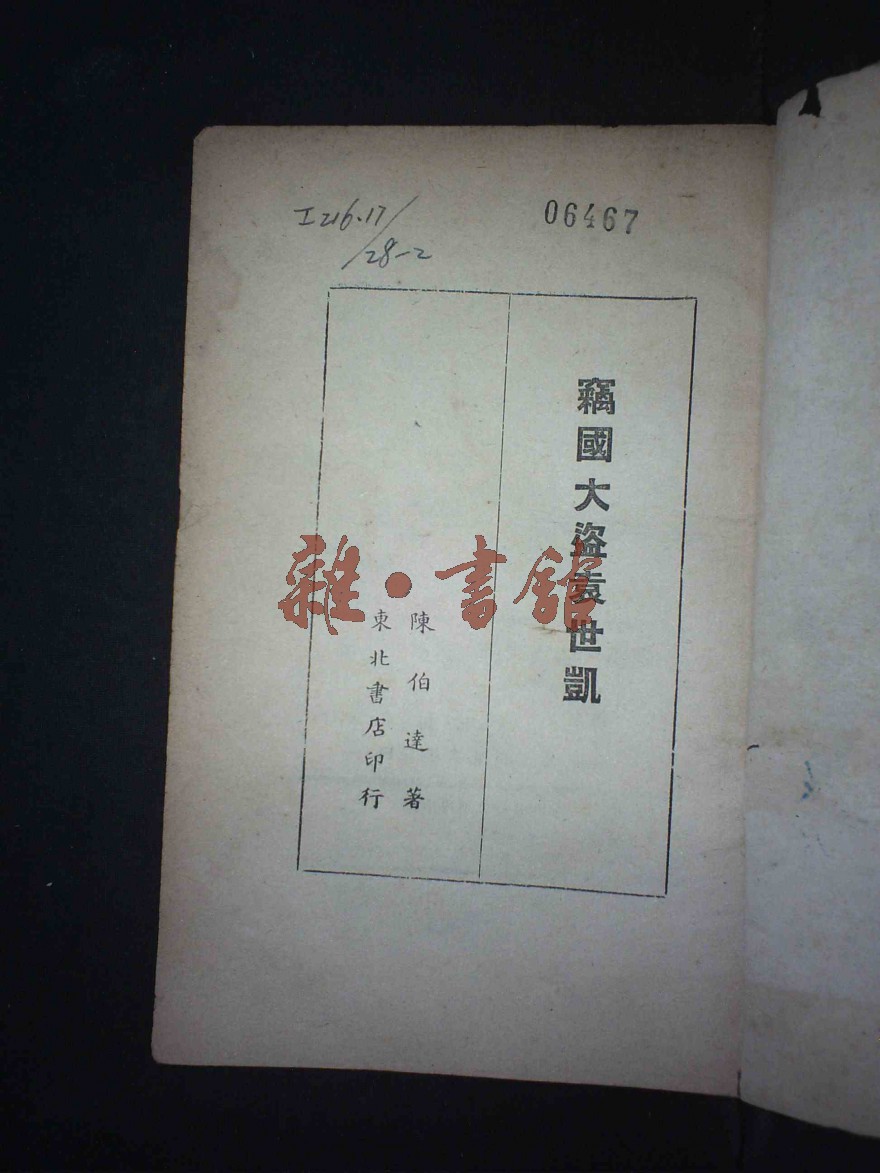 I216.17/28-2
06467
竊國大盜袁世凱
陳伯達著
東北書店印行
雜·書館